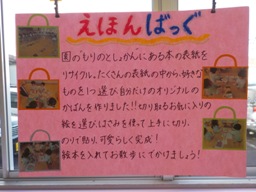 えほんばっぐ
園のもりのとしょかんにある本の表紙を
リサイクル。たくさんの表紙の中から、好きな
ものを1つ選び自分だけのオリジナルの
かばんを作りました!!切り取るお気に入りの
絵を選び、はさみを使って上手に切り、
のりで貼り、可愛らしく完成!
絵本を入れてお散歩にでかけましょう!